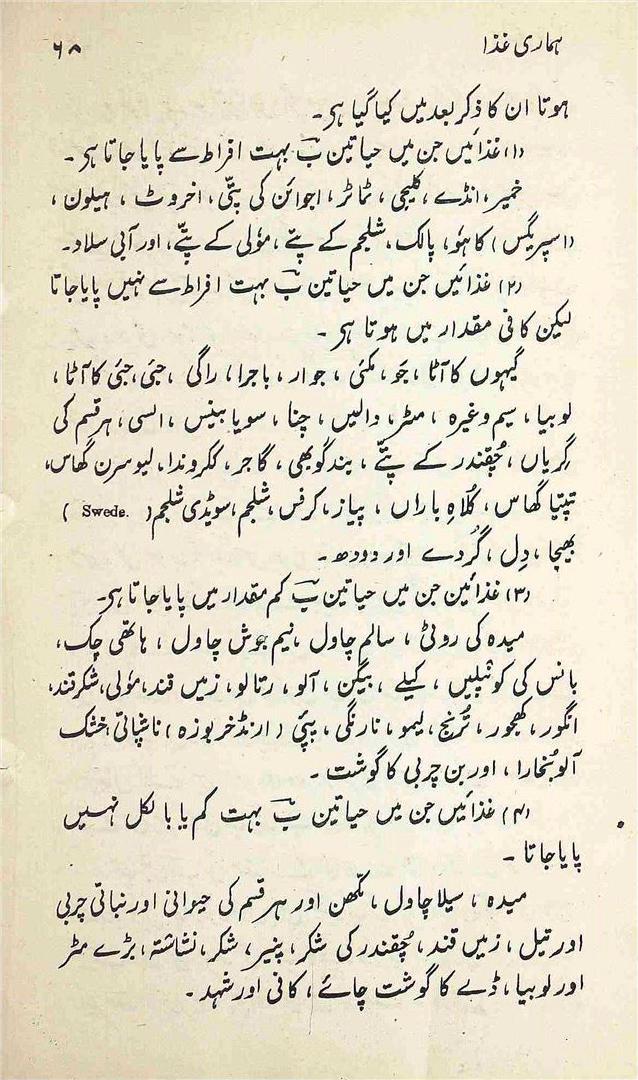 ہماری غذا ۶۸
ہوتا ان کا ذکر بعد میں کیا گیا ہی۔
(۱) غذائیں جن میں حیاتین بؔ بہت افراط سے پایا جاتا ہی۔
خمیر، انڈے، کلیجی، ٹماٹر، اجوائن کی پتّی، اخروٹ، ہیلون،
(اسپریگس) کاہو، پالک، شلجم کے پتّے، مؤلی کے پتّے، اور آبی سلاد۔
(۲) غذائیں جن میں حیاتین بؔ بہت افراط سے نہیں پایا جاتا
لیکن کافی مقدار میں ہوتا ہی۔
گیہوں کا آٹا، جَو، مکئی، جوار، باجرا، راگی، جئی، جئی کا آٹا،
لوبیا، سیم وغیرہ، مٹر، دالیں، چنا، سویا بینس، السی، ہر قسم کی
گِریاں، چُقندر کے پتّے، بند گوبھی، گاجر، ککروندا، لیوسرن گھاس،
تپتیا گھاس، کُلاہِ باراں، پیاز، کرفس، شلجم، سویڈی شلجم (Swede.)
بھیجا، دِل، گُردے اور دودھ۔
(۳) غذائین جن میں حیاتین بؔ کم مقدار میں پایا جاتا ہی۔
میدہ کی روٹی، سالم چاول، نیم جوش چاول، ہاتھی چک،
بانس کی کونپلیں، کیلے، بیگن، آلو، رتالو، زمیں قند، مؤلی، شکرقند،
انگور، کھجور، تُرنج، لیمو، نارنگی، پپئی (ارنڈ خربوزہ) ناشپاتی، خشک
آلو بُخارا، اور بن چربی کا گوشت۔
(۴) غذائیں جن میں حیاتین بؔ بہت کم یا بالکل نہیں
پایا جاتا۔
میدہ، سیلا چاول، مکّھن اور ہر قسم کی حیوانی اور نباتی چربی
اور تیل، زمیں قند، چُقندر کی شکر، پنیر، شکر، نشاشتہ، بڑے مٹر
اور لوبیا، ڈبے کا گوشت چائے، کافی اور شہد۔